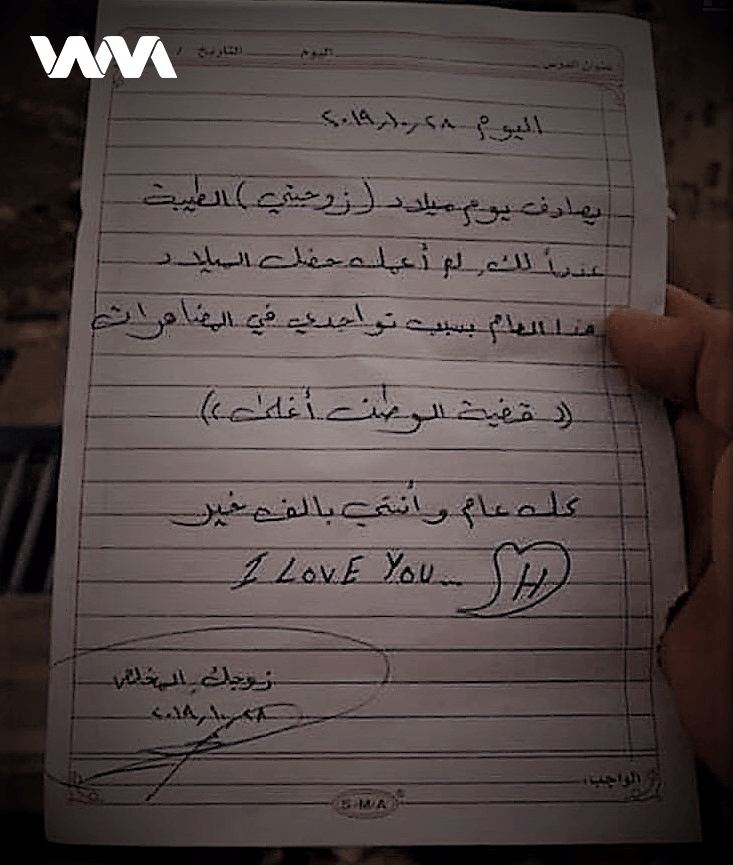 WM
عنوان الدرس اليوم التاريخ /
اليوم ٢٠١٩/١٠/٢٨
يصادف يوم ميلاد (زوجتي) الطيبة
عذراً لك. لم أعمل حفل الميلاد
هذا العام بسبب تواجدي في المضاهرات
((قضية الوطن أغلى))
كل عام وأنتي بالف خير
I LOVE YOU... H
زوجك المخلص
٢٠١٩/١٠/٢٨
الواجب:
S-M/A ®